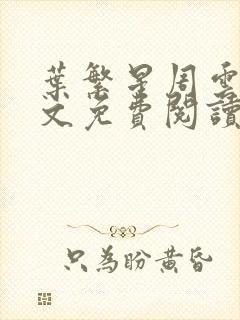 葉繁星周雲
文免費閱讀
只為盼黃昏